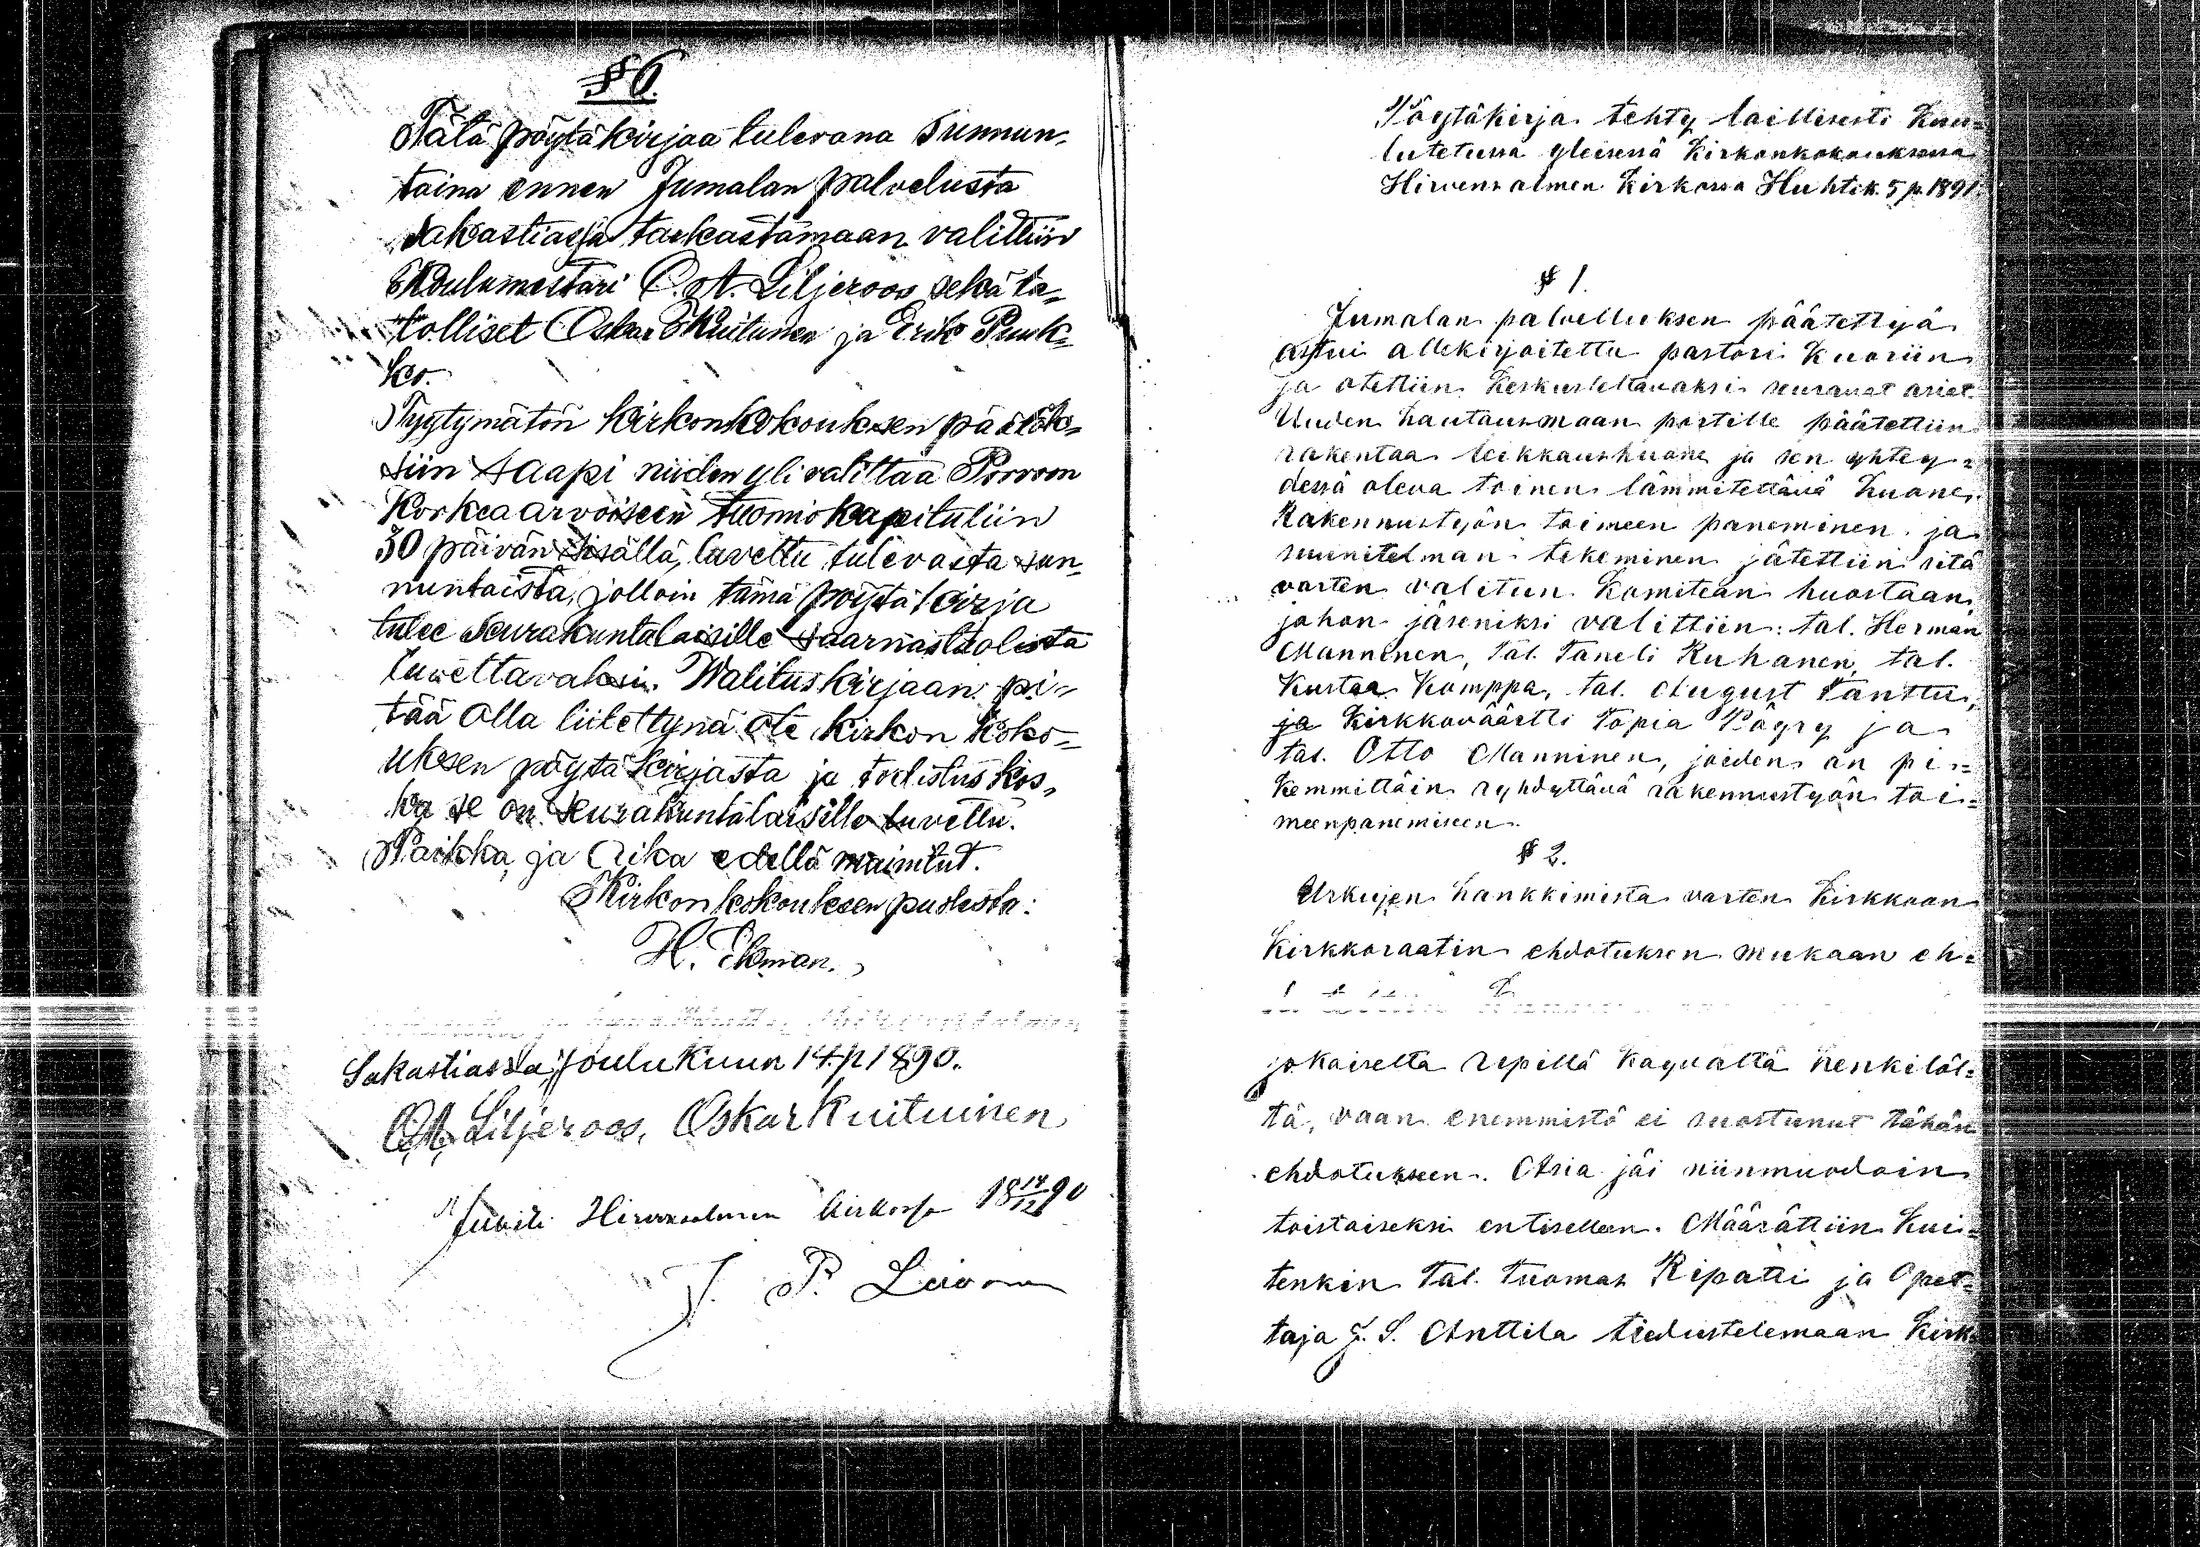 § 6.
Tätä pöytäkirjaa tulevana Sunnun-
taina ennen Jumalan palvelusta
Sakastiassa tarkastamaan valittiin
Koulumestari O. A. Liljeroos sekä ta-
lolliset Oskar Kuitunen ja Erik Puuk-
ko.
Tyytymätön kirkonkokouksen päätök-
siin saapi niiden yli valittaa Porvoon
Korkeaarvoiseen tuomiokapituliin
30 päivän sisällä, luvettu tulevasta sun-
nuntaista, jolloin tämä pöytäkirja
tulee Seurakuntalaisille saarnastuolista
luvettavaksi. Walituskirjaan pi-
tää olla liitettynä ote kirkon koko-
uksen pöytäkirjasta ja todistus kos-
ka se on seurakuntalaisille luvettu.
Paikka ja Aika edellä mainitut.
Kirkonkokouksen puolesta:
H. Ekman.
Sakastiassa Joulukuun 14.p 1890.
O.A. Liljeroos, Oskar Kuituinen
Hirvensalmen kirkossa 18 14/12 90
J. P.
Pöytäkirja tehty laillisesti Kuu-
lutetussa yleisessä Kirkonkokouksessa
Hirvensalmen Kirkossa Huhtik. 5 p. 1891.
§ 1.
Jumalan palvelluksen päätettyä
astui allekirjoitettu pastori Kuoriin
ja otettiin Keskusteltavaksi seuravat asiat.
Uuden hautausmaan portille päätettiin
rakentaa leikkaushuone ja sen yhtey-
dessä oleva toinen lämmitettävä huone.
Rakennustyön toimeen paneminen ja
suunitelman tekeminen jätettiin sitä
varten valitun Komitean huostaan,
johon jäseniksi valittiin: tal. Herman
Manninen, tal. Taneli Ruhanen, tal.
Kustaa Komppa, tal. August Tanttu,
ja Kirkkoväärtti Topia Pöyry ja
tal. Otto Manninen, joiden on pi-
kemmittäin ryhdyttävä rakennustyön toi-
meenpanemiseen.
§ 2.
Urkujen hankkimista varten Kirkkoon
Kirkkoraatin ehdotuksen mukaan eh-
jokaiselta ripillä käyvältä henkilöl-
tä, vaan enemmistö ei suostunut tähän
ehdotukseen. Asia jäi niinmuodoin
toistaiseksi entiselleen. Määrättiin Kui-
tenkin Tal. Tuomas Ripatti ja Opet-
taja J. S. Anttila tiedustelemaan Kirk-